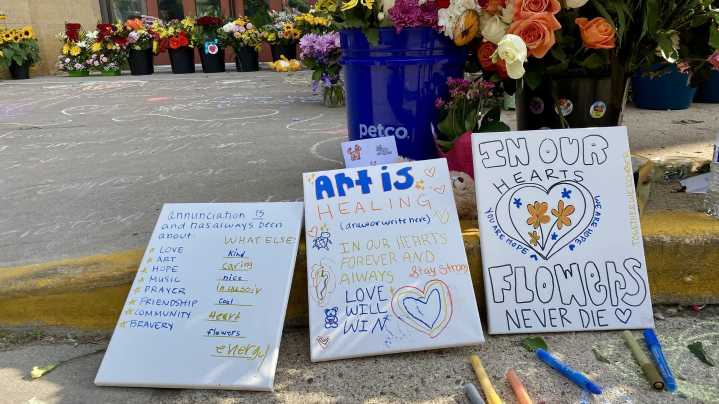 petco
annunciation is
and has always been
about
WHAT ELSE?
LOVE
ART
HOPE
MUSIC
PRAYER
FRIENDSHIP
COMMUNITY
BRAVERY
Kind
Caring
nice
cool
Heart
flowers
energy
Art is
HEALING
(draw or write here)
IN OUR HEARTS
FOREVER AND
ALWAYS
Stay Strong
LOVE
WILL
WIN
IN OUR
HEARTS
YOU ARE HOPE
WE ARE HOPE
FLOWERS
NEVER DIE